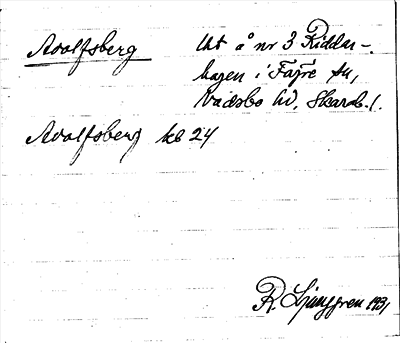 Adolfsberg Utt å nr 3 Riddar-
hagen i Fägre sn,
Vadsbo hd, Skarab. l.
Adolfsberg kb 24
R. Ljunggren 1931